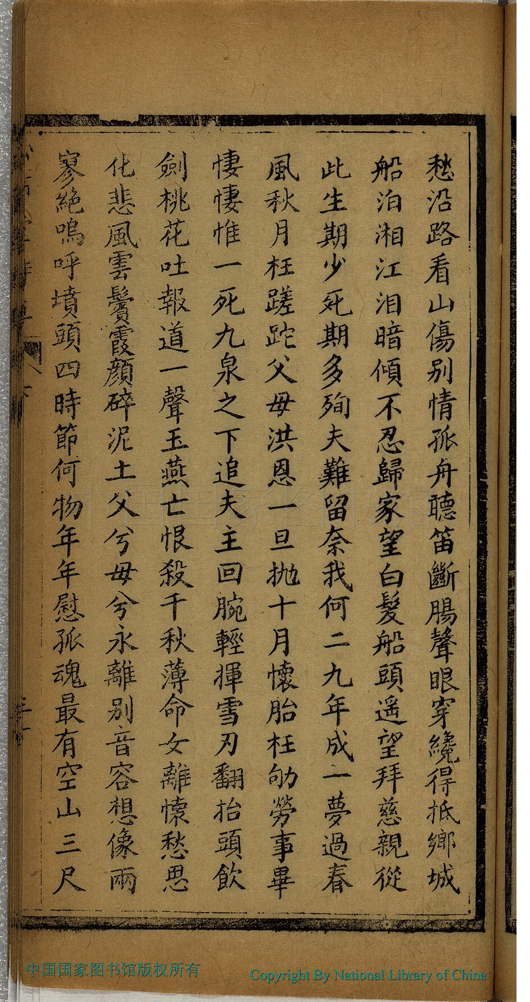 愁沿路看山傷別情孤舟聽笛斷腸聲眼穿纔得抵鄉城
船泊湘江泪暗傾不忍歸家望白髮船頭遙望拜慈親從
此生期少死期多殉夫難留奈我何二九年成一夢過春
風秋月枉蹉跎父母洪恩一旦抛十月懷胎枉劬勞事畢
悽悽惟一死九泉之下追夫主回腕輕揮雪刃翻抬頭飲
劍桃花吐報道一聲玉燕亡恨殺千秋薄命女離懷愁思
化悲風雲鬢霞顏碎泥土父兮母兮永離別音容想像兩
寥絶嗚呼墳頭四時節何物年年慰孤魂最有空山三尺
中国国家图书馆版权所有
Copyright By National Library of China